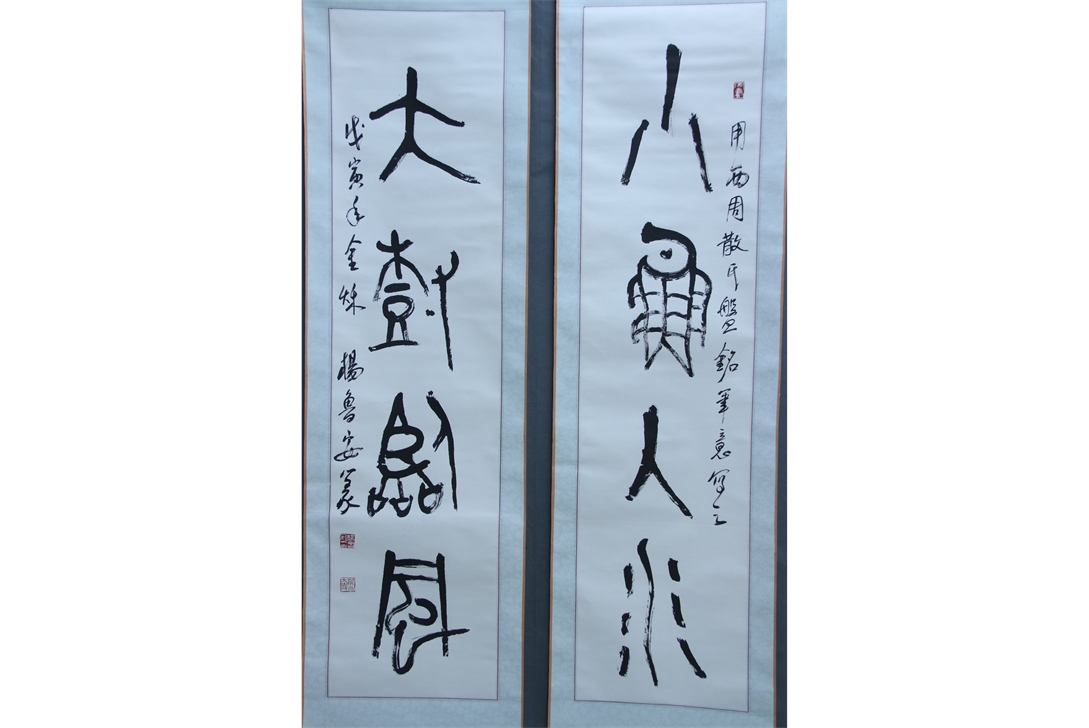 用西周散氏盤銘筆意寫之
小魚入水
大樹臨風
戊寅年金秋 楊魯安篆